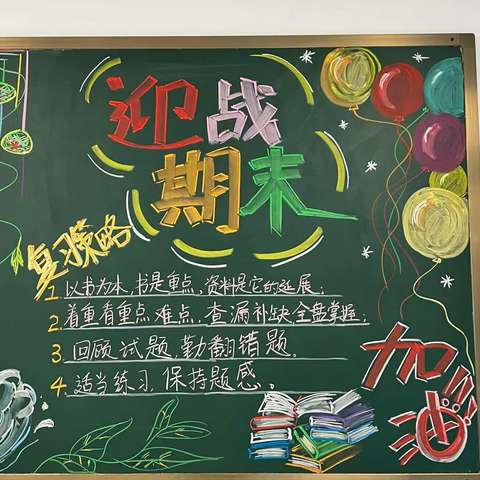 迎战
期末
复习策略
1. 以书为本,书是重点,资料是它的延展;
2. 着重看重点难点,查漏补缺,全盘掌握;
3. 回顾试题,勤翻错题。
4. 适当练习,保持题感。
加油!!!